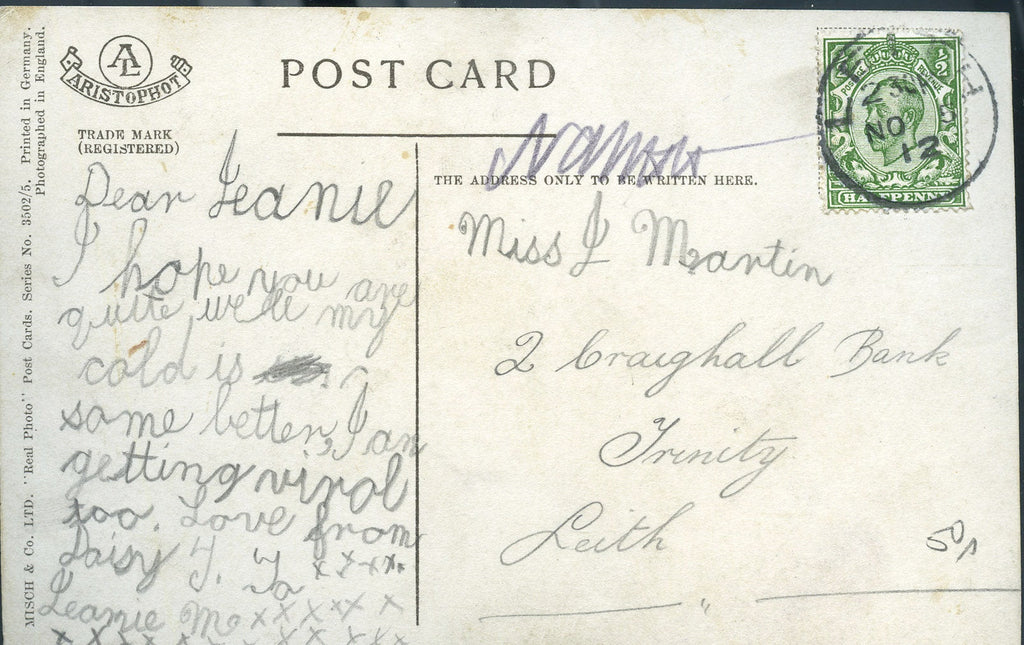 MISCH & Co. LTD. "Real Photo" Post Cards. Series No. 3502/5. Printed in Germany.
Photographed in England.
AL
ARISTOPHOT
TRADE MARK
(REGISTERED)
POST CARD
THE ADDRESS ONLY TO BE WRITTEN HERE.
POSTAGE REVENUE
1/2
HALFPENNY
NO
12
Dear Jeanie
I hope you are
quite well my
cold is
some better, I am
getting virol
too. Love from
Daisy J. To xxxx
Jeanie M. xxxxxx
Miss J Martin
2 Craighall Bank
Trinity
Leith